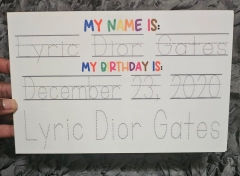 MY NAME IS:
Lyric Dior Gates
MY BIRTHDAY IS:
December 23, 2020
Lyric Dior Gates